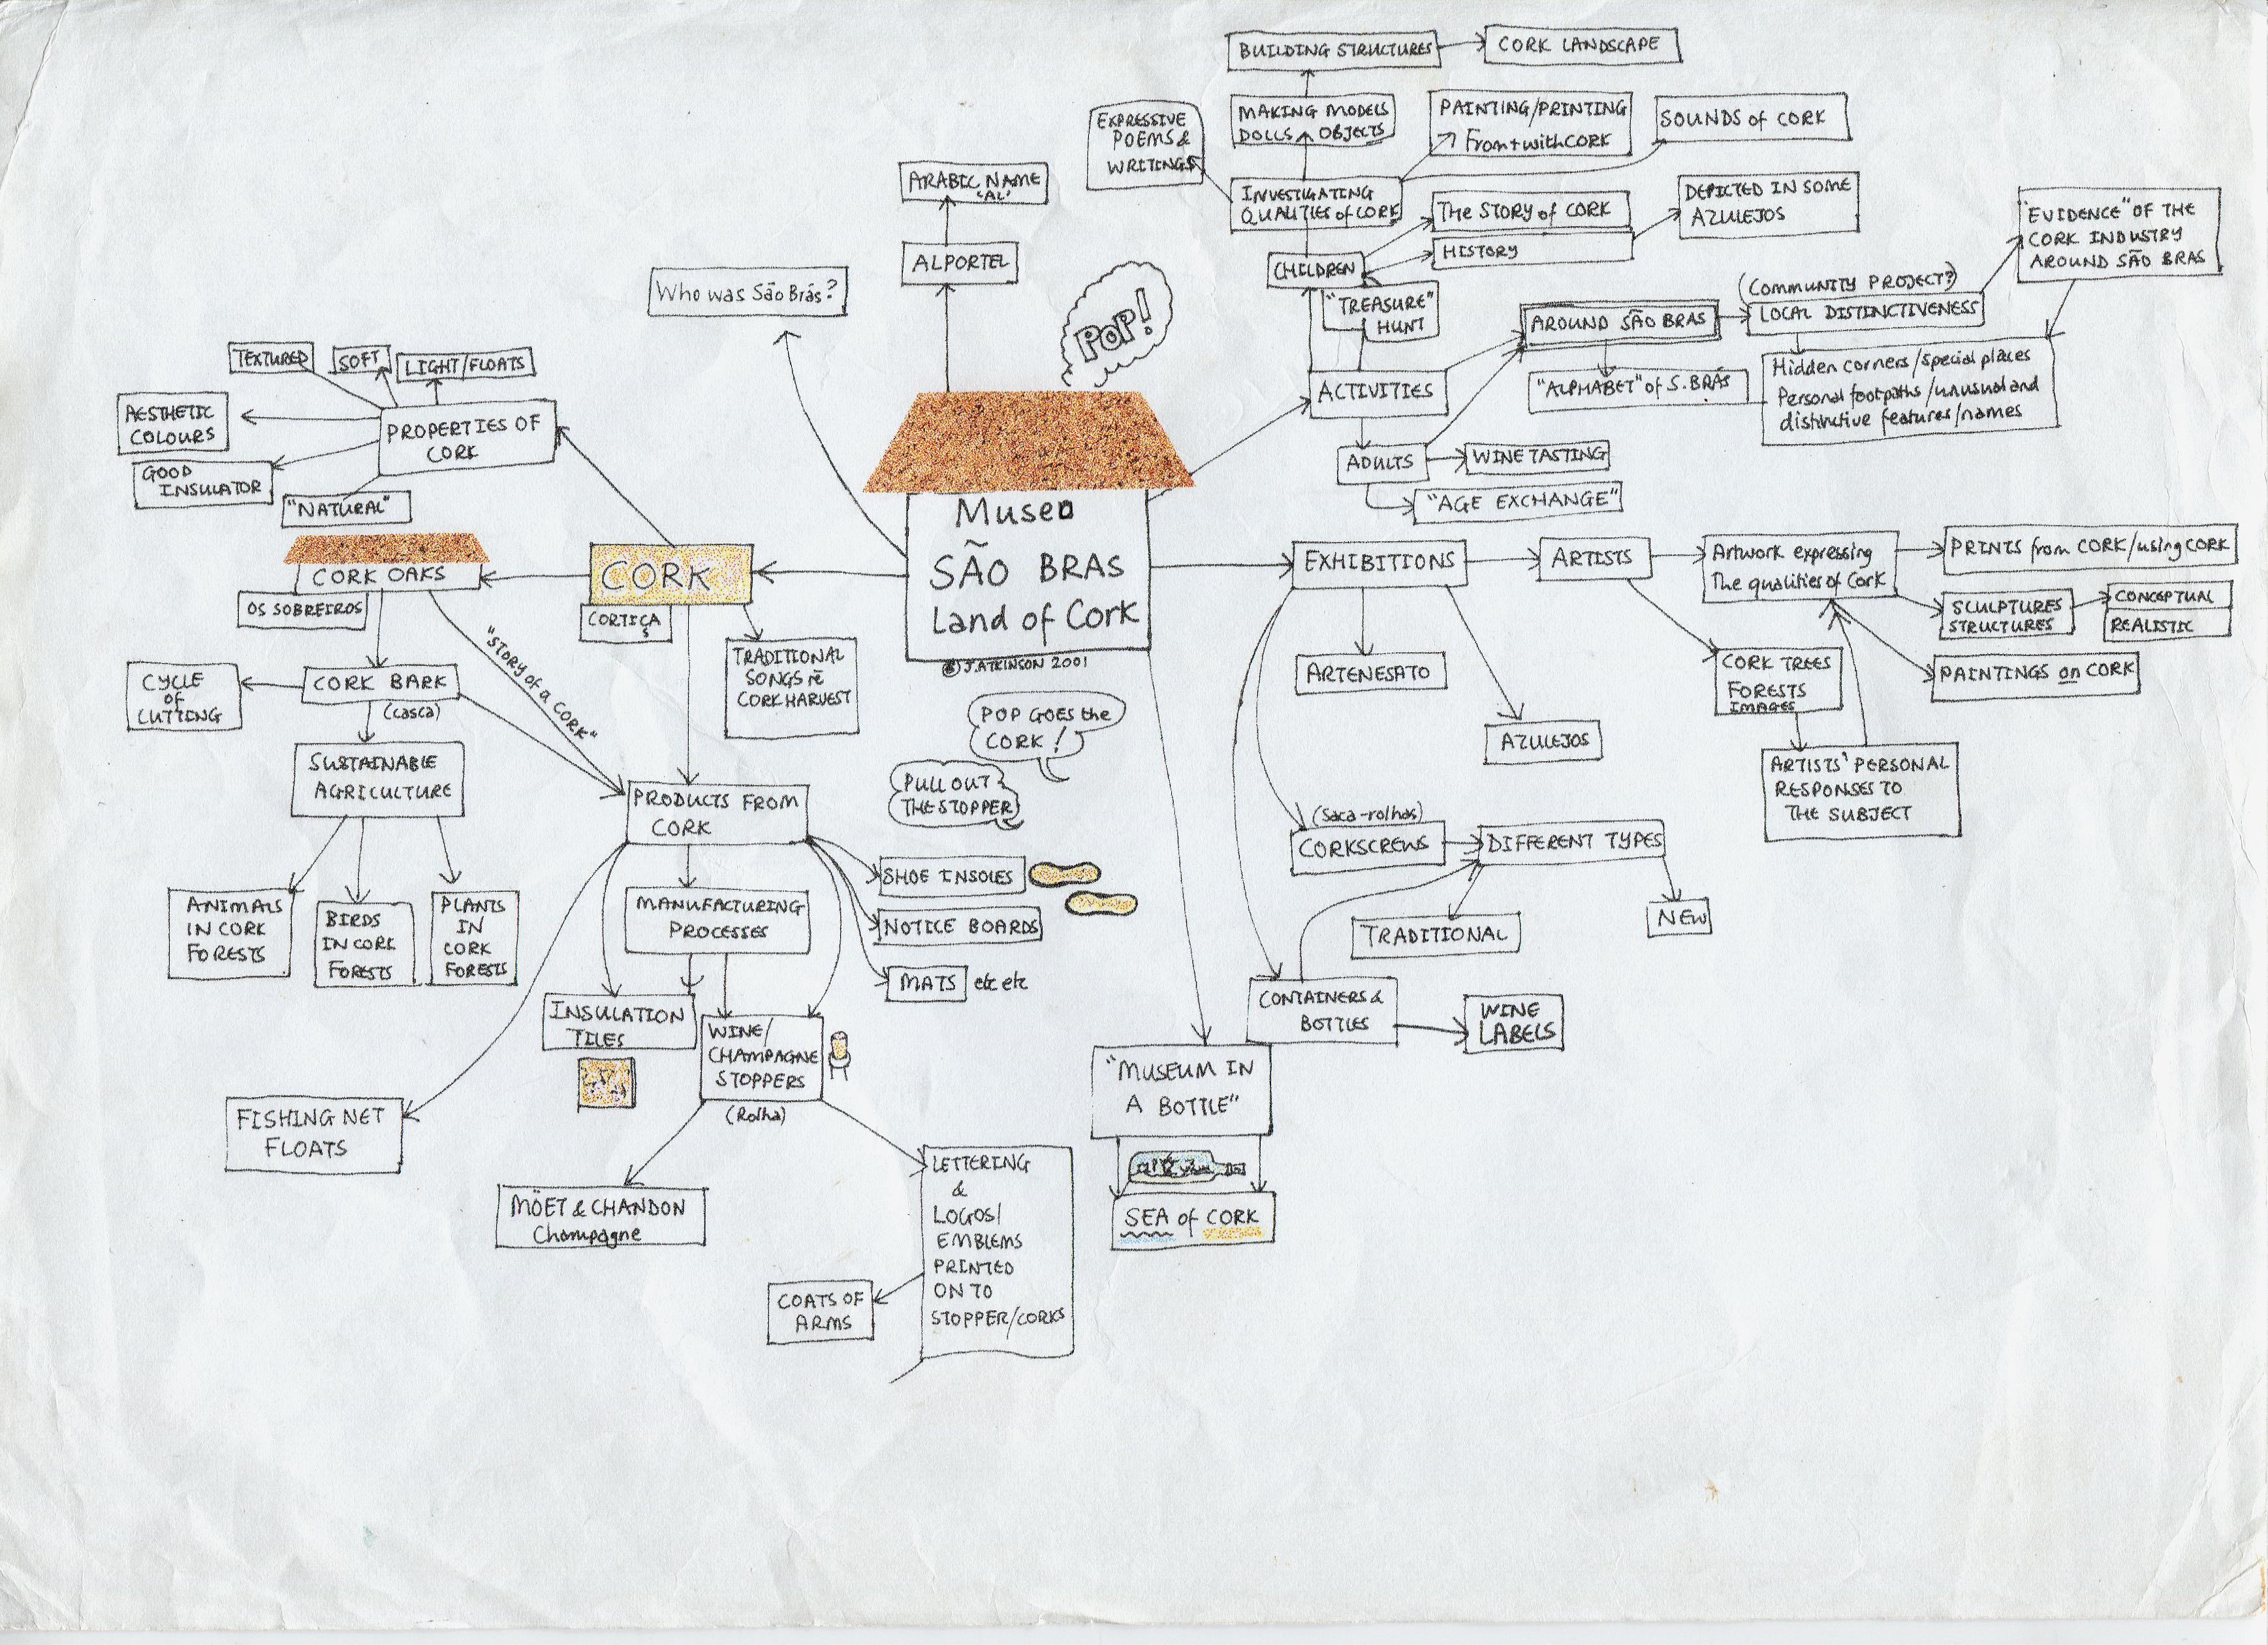 BUILDING STRUCTURES
CORK LANDSCAPE
EXPRESSIVE
POEMS &
WRITINGS
MAKING MODELS
DOLLS OBJECTS
PAINTING/PRINTING
From + with CORK
SOUNDS of CORK
INVESTIGATING
QUALITIES of CORK
The STORY of CORK
HISTORY
DEPICTED IN SOME
AZULEJOS
"EVIDENCE" OF THE
CORK INDUSTRY
AROUND SÃO BRAS
CHILDREN
"TREASURE"
HUNT
(COMMUNITY PROJECT?)
LOCAL DISTINCTIVENESS
AROUND SÃO BRAS
"ALPHABET" of S. BRÁS
Hidden corners/special places
Personal footpaths/unusual and
distinctive features/names
ACTIVITIES
ADULTS
WINE TASTING
"AGE EXCHANGE"
ARABIC NAME
'AL'
ALPORTEL
Who was São Brás?
POP!
TEXTURED
SOFT
LIGHT/FLOATS
AESTHETIC
COLOURS
PROPERTIES OF
CORK
GOOD
INSULATOR
"NATURAL"
Museo
SÃO BRAS
Land of Cork
© J. ATKINSON 2001
CORK
CORTIÇA
CORK OAKS
OS SOBREIROS
"STORY of a CORK"
TRADITIONAL
SONGS re
CORK HARVEST
CYCLE
OF
CUTTING
CORK BARK
(casca)
SUSTAINABLE
AGRICULTURE
ANIMALS
IN CORK
FORESTS
BIRDS
IN CORK
FORESTS
PLANTS
IN
CORK
FORESTS
POP GOES the
CORK!
PULL OUT
THE STOPPER
PRODUCTS FROM
CORK
SHOE INSOLES
NOTICE BOARDS
MATS etc etc
MANUFACTURING
PROCESSES
INSULATION
TILES
WINE/
CHAMPAGNE
STOPPERS
(Rolha)
FISHING NET
FLOATS
MÖET & CHANDON
Champagne
LETTERING
&
LOGOS/
EMBLEMS
PRINTED
ON TO
STOPPER/CORKS
COATS OF
ARMS
EXHIBITIONS
ARTISTS
Artwork expressing
The qualities of Cork
PRINTS from CORK/using CORK
SCULPTURES
STRUCTURES
CONCEPTUAL
REALISTIC
PAINTINGS on CORK
CORK TREES
FORESTS
IMAGES
ARTISTS' PERSONAL
RESPONSES TO
THE SUBJECT
ARTENESATO
AZULEJOS
(Saca-rolhas)
CORKSCREWS
DIFFERENT TYPES
TRADITIONAL
NEW
CONTAINERS &
BOTTLES
WINE
LABELS
"MUSEUM IN
A BOTTLE"
SEA of CORK